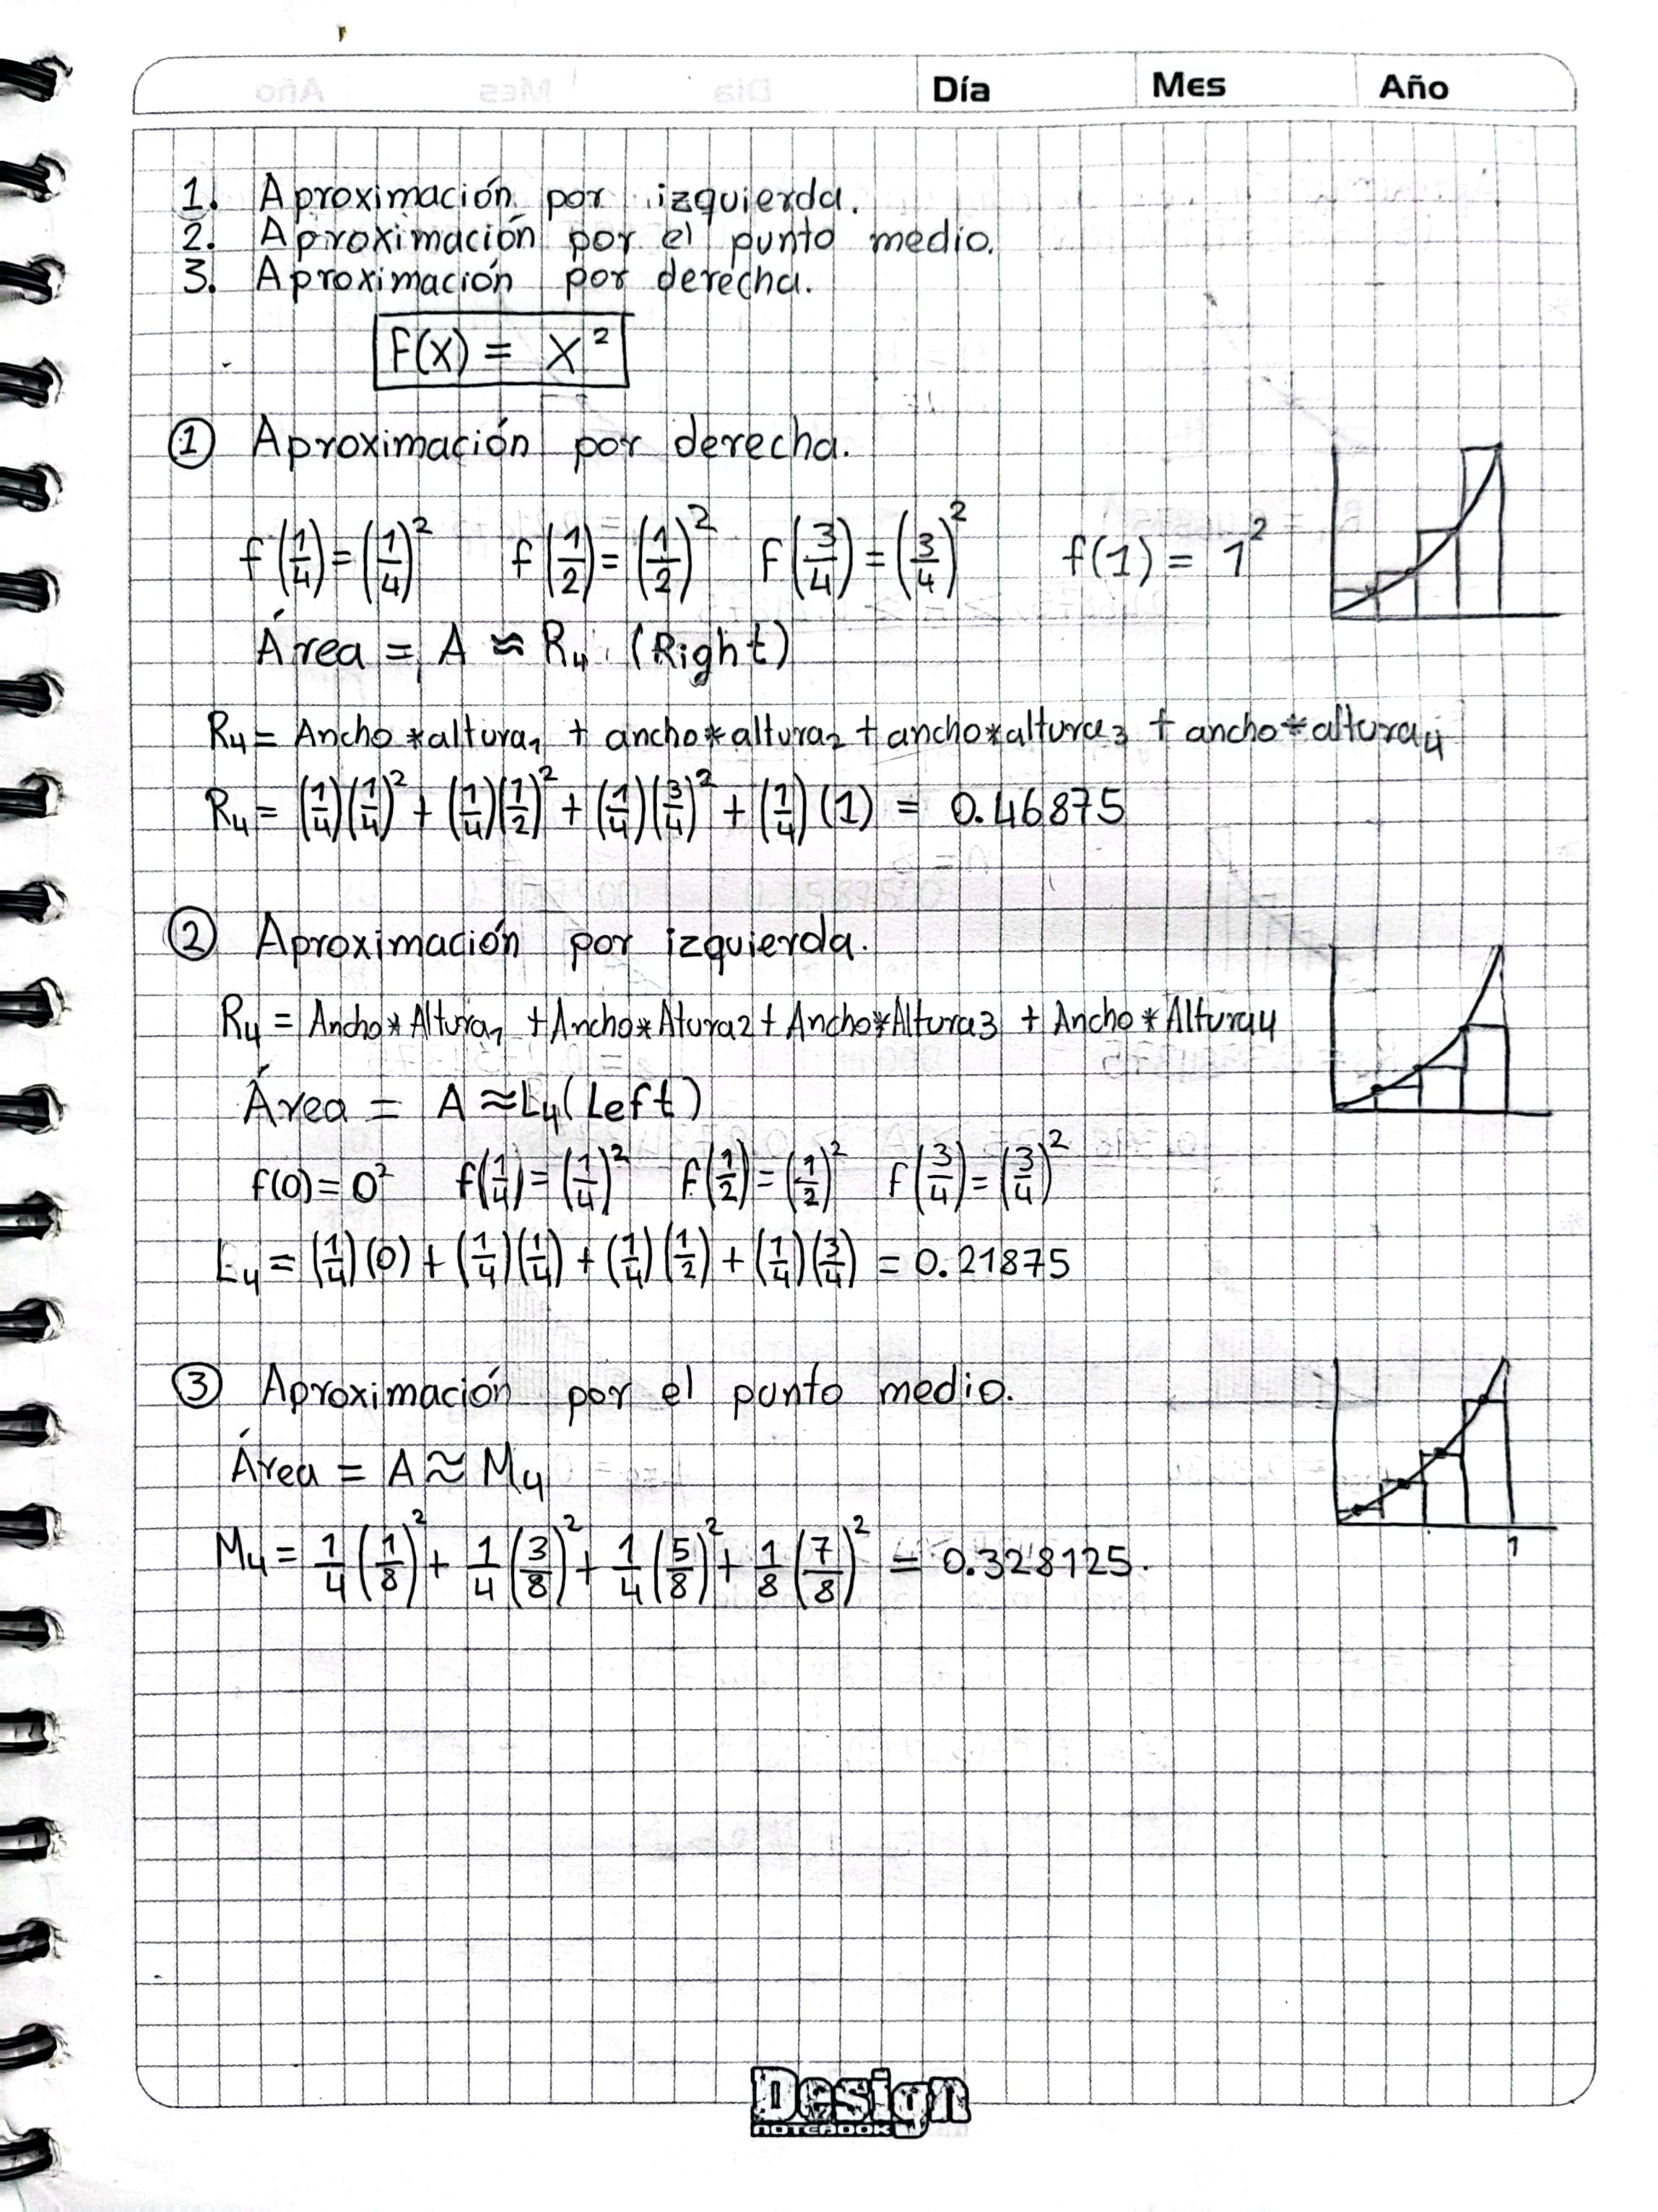 Día Mes Año
1. Aproximación por izquierda.
2. Aproximación por el punto medio.
3. Aproximación por derecha.
F(x) = x²
① Aproximación por derecha.
f(1/4) = (1/4)² f(1/2) = (1/2)² F(3/4) = (3/4)² f(1) = 1²
Área = A ≈ R₄ (Right)
R₄ = Ancho*altura₁ + ancho*altura₂ + ancho*altura₃ + ancho*altura₄
R₄ = (1/4)(1/4)² + (1/4)(1/2)² + (1/4)(3/4)² + (1/4)(1) = 0.46875
② Aproximación por izquierda.
R₄ = Ancho*Altura₁ + Ancho*Atura2 + Ancho*Altura3 + Ancho*Altura4
Área = A ≈ L₄ (Left)
f(0) = 0² f(1/4) = (1/4)² F(1/2) = (1/2)² F(3/4) = (3/4)²
L₄ = (1/4)(0) + (1/4)(1/4) + (1/4)(1/2) + (1/4)(3/4) = 0.21875
③ Aproximación por el punto medio.
Área = A ≈ M₄
M₄ = 1/4(1/8)² + 1/4(3/8)² + 1/4(5/8)² + 1/8(7/8)² = 0.328125.
1
Design
NOTEBOOK